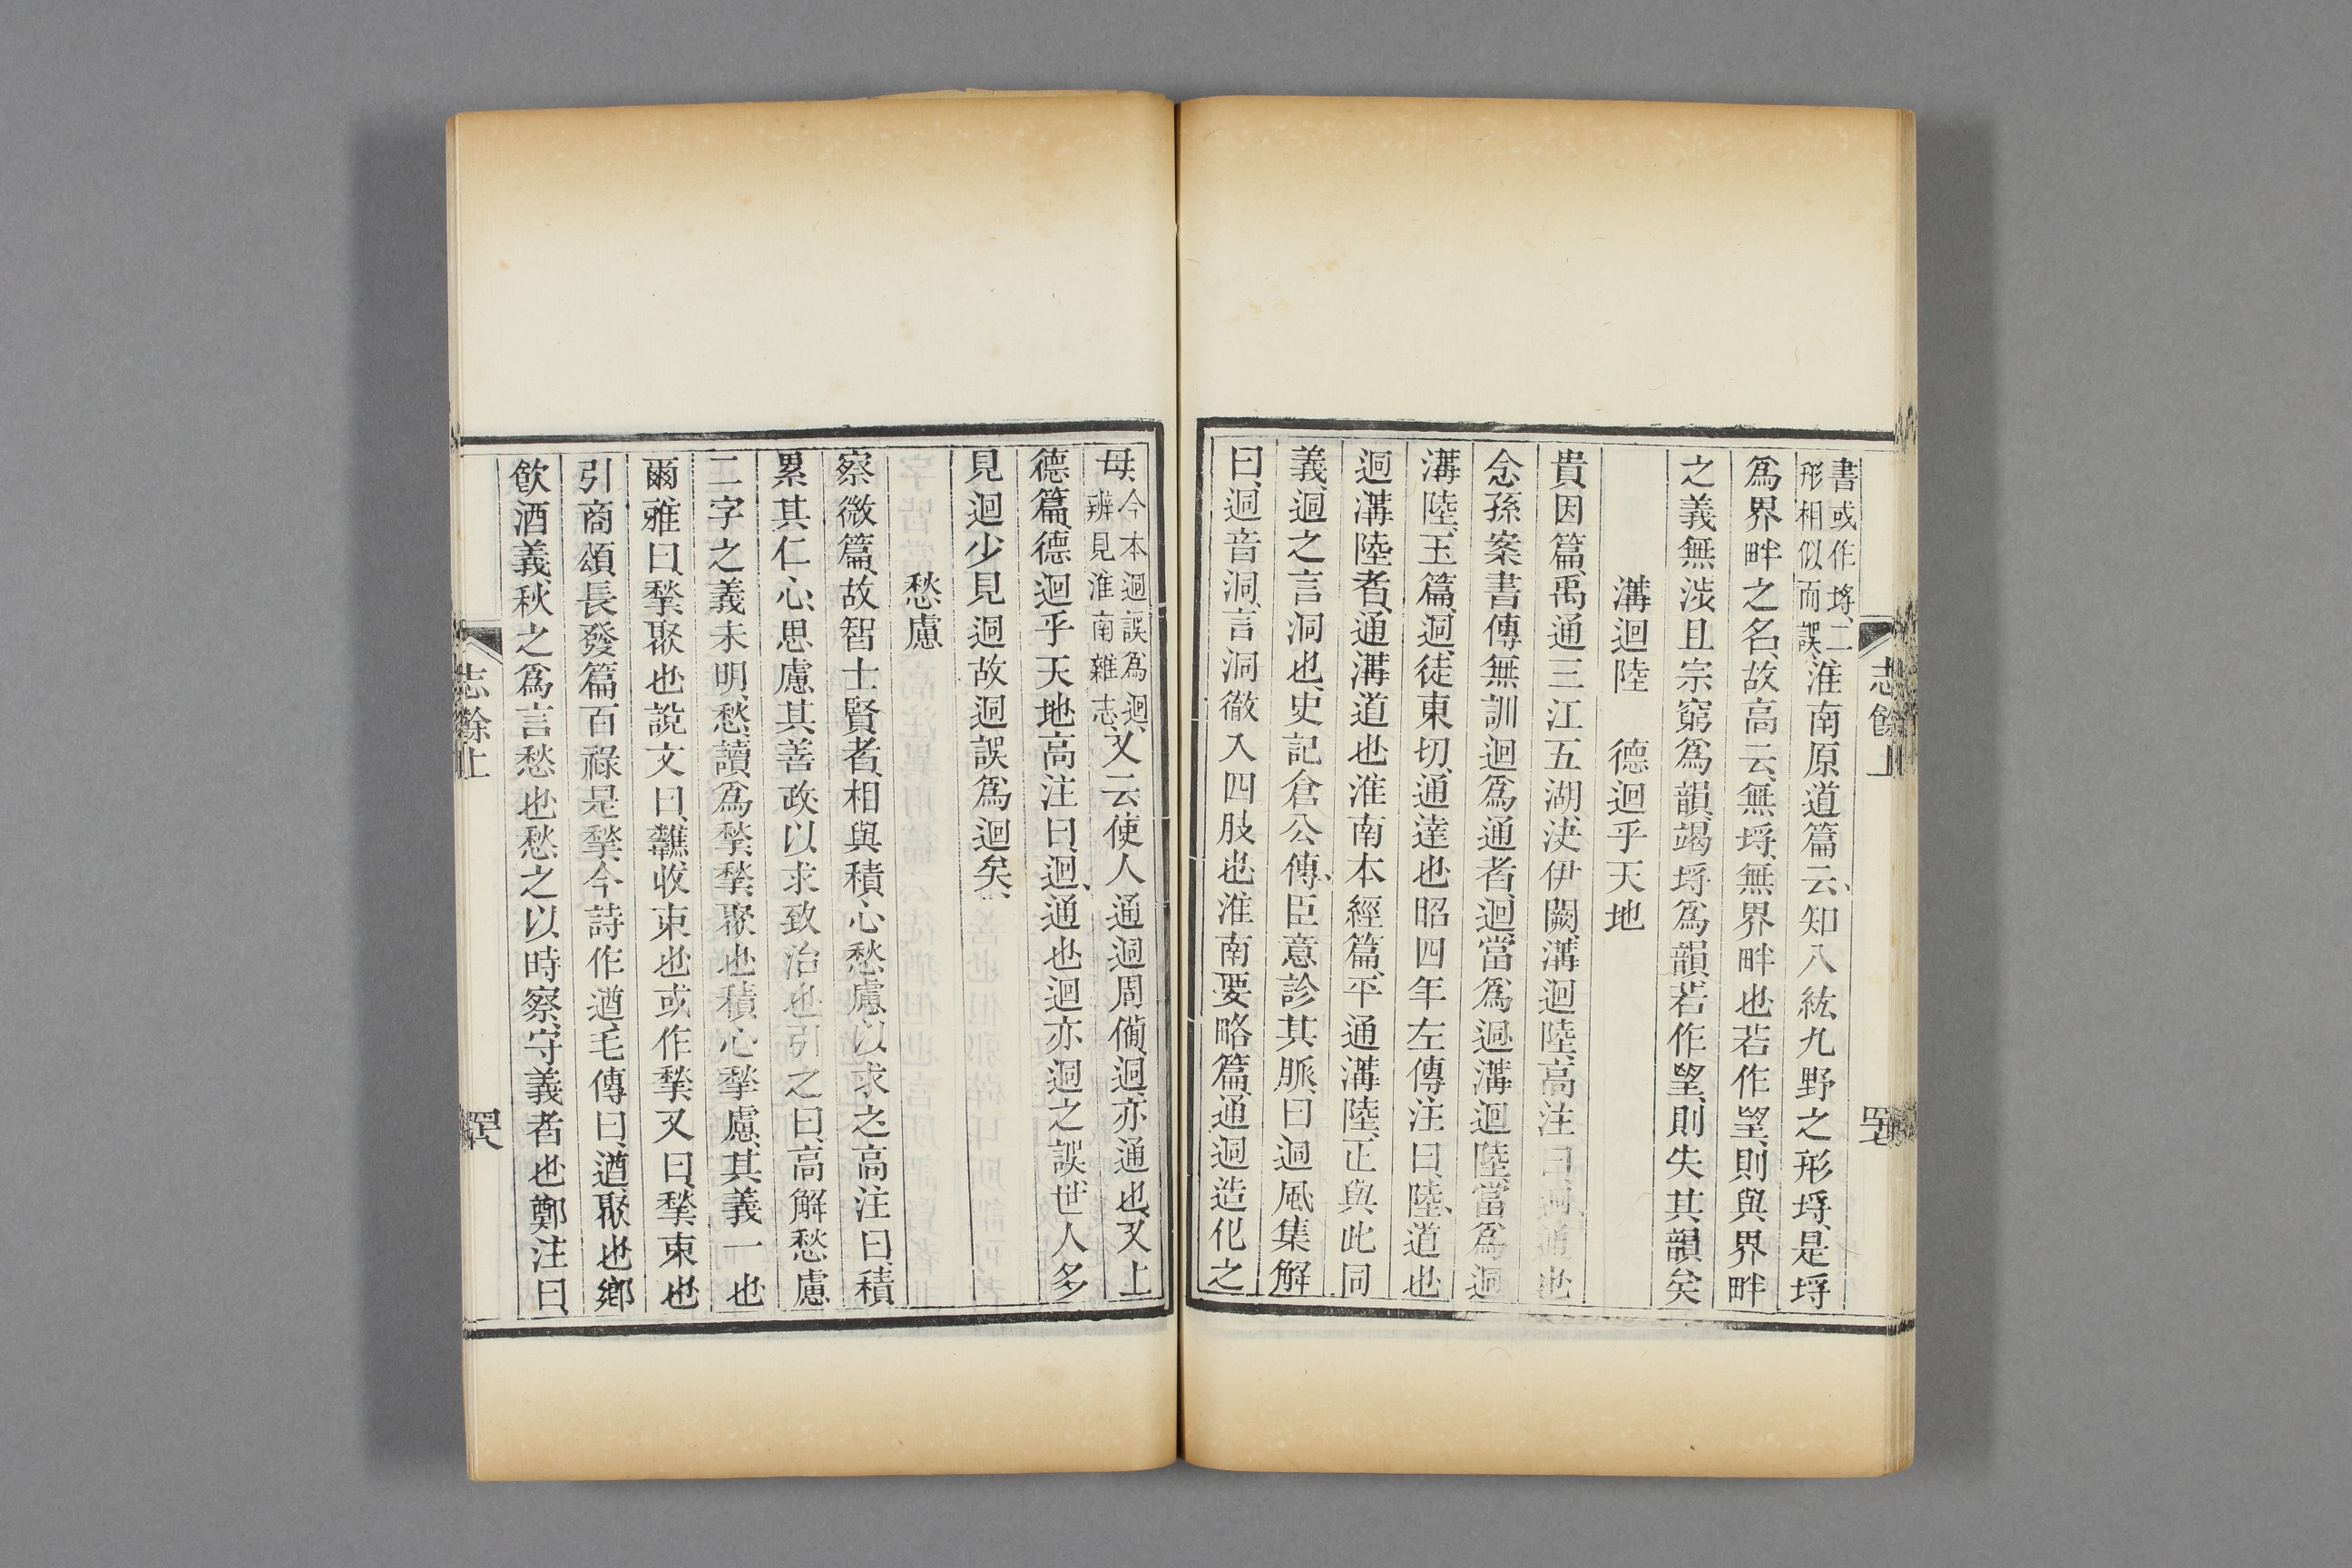 書或作埒、二
形相似而誤、
淮南原道篇云、知八紘九野之形埒、是埒
爲界畔之名、故高云、無埒、無界畔也、若作望、則與界畔
之義無涉、且宗窮爲韻、竭埒爲韻、若作望、則失其韻矣
溝迴陸　德迴乎天地
貴因篇、禹通三江五湖、決伊闕、溝迴陸、高注曰、迴、通也
念孫案書傳無訓迴爲通者、迴當爲迵、溝迴陸、當爲迵
溝陸、玉篇、迵、徒東切、通達也、昭四年左傳注曰、陸、道也
迵溝陸者、通溝道也、淮南本經篇、平通溝陸、正與此同
義、迵之言洞也、史記倉公傳、臣意診其脈、曰迵風、集解
曰、迵音洞、言洞徹入四肢也、淮南要略篇、通迵造化之
志餘上
四七
母、
今本迵誤爲迴、
辨見淮南雜志、
又云使人通迵周備、迵亦通也、又上
德篇、德迴乎天地、高注曰、迴、通也、迴亦迵之誤、世人多
見迴、少見迵、故迵誤爲迴矣、
愁慮
察微篇、故智士賢者、相與積心愁慮以求之、高注曰、積
累其仁心、思慮其善政、以求致治也、引之曰、高解愁慮
二字之義未明、愁讀爲揫、揫、聚也、積心揫慮、其義一也
爾雅曰、揫、聚也、說文曰、𪚰、收束也、或作揫、又曰、揫、束也
引商頌長發篇百祿是揫、今詩作遒、毛傳曰、遒、聚也、鄉
飲酒義、秋之爲言愁也、愁之以時察、守義者也、鄭注曰
志餘上
四八